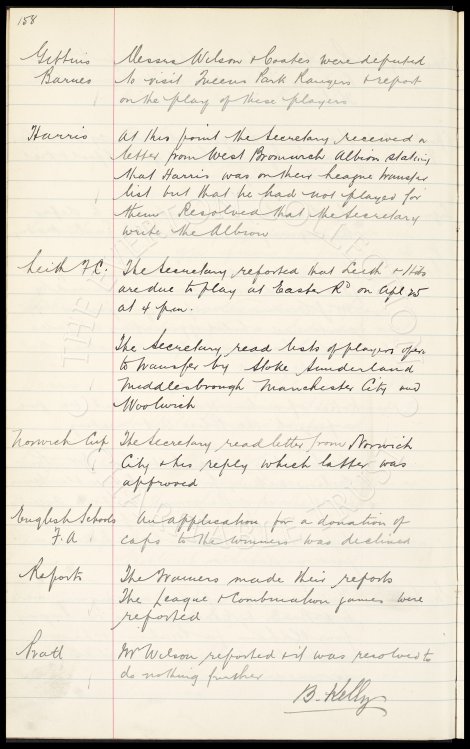 158
Gittins Messrs Wilson & Coates were deputed
Barnes to visit Queens Park Rangers & report
on the play of these players
Harris At this point the Secretary received a
letter from West Bromwich Albion stating
that Harris was on their League transfer
list but that he had not played for
them Resolved that the Secretary
write the Albion
Leith F.C. The Secretary reported that Leith & Hibs
are due to play at Easter Rd on Apl 25
at 4 p.m.
The Secretary read lists of players open
to transfer by Stoke Sunderland
Middlesbrough Manchester City and
Woolwich
Norwich Cup The Secretary read letter from Norwich
City & his reply which latter was
approved
English Schools An application for a donation of
F.A. caps to the winners was declined
Reports The Trainers made their reports
The League & Combination games were
reported
Pratt Mr Wilson reported & it was resolved to
do nothing further
B. Kelly